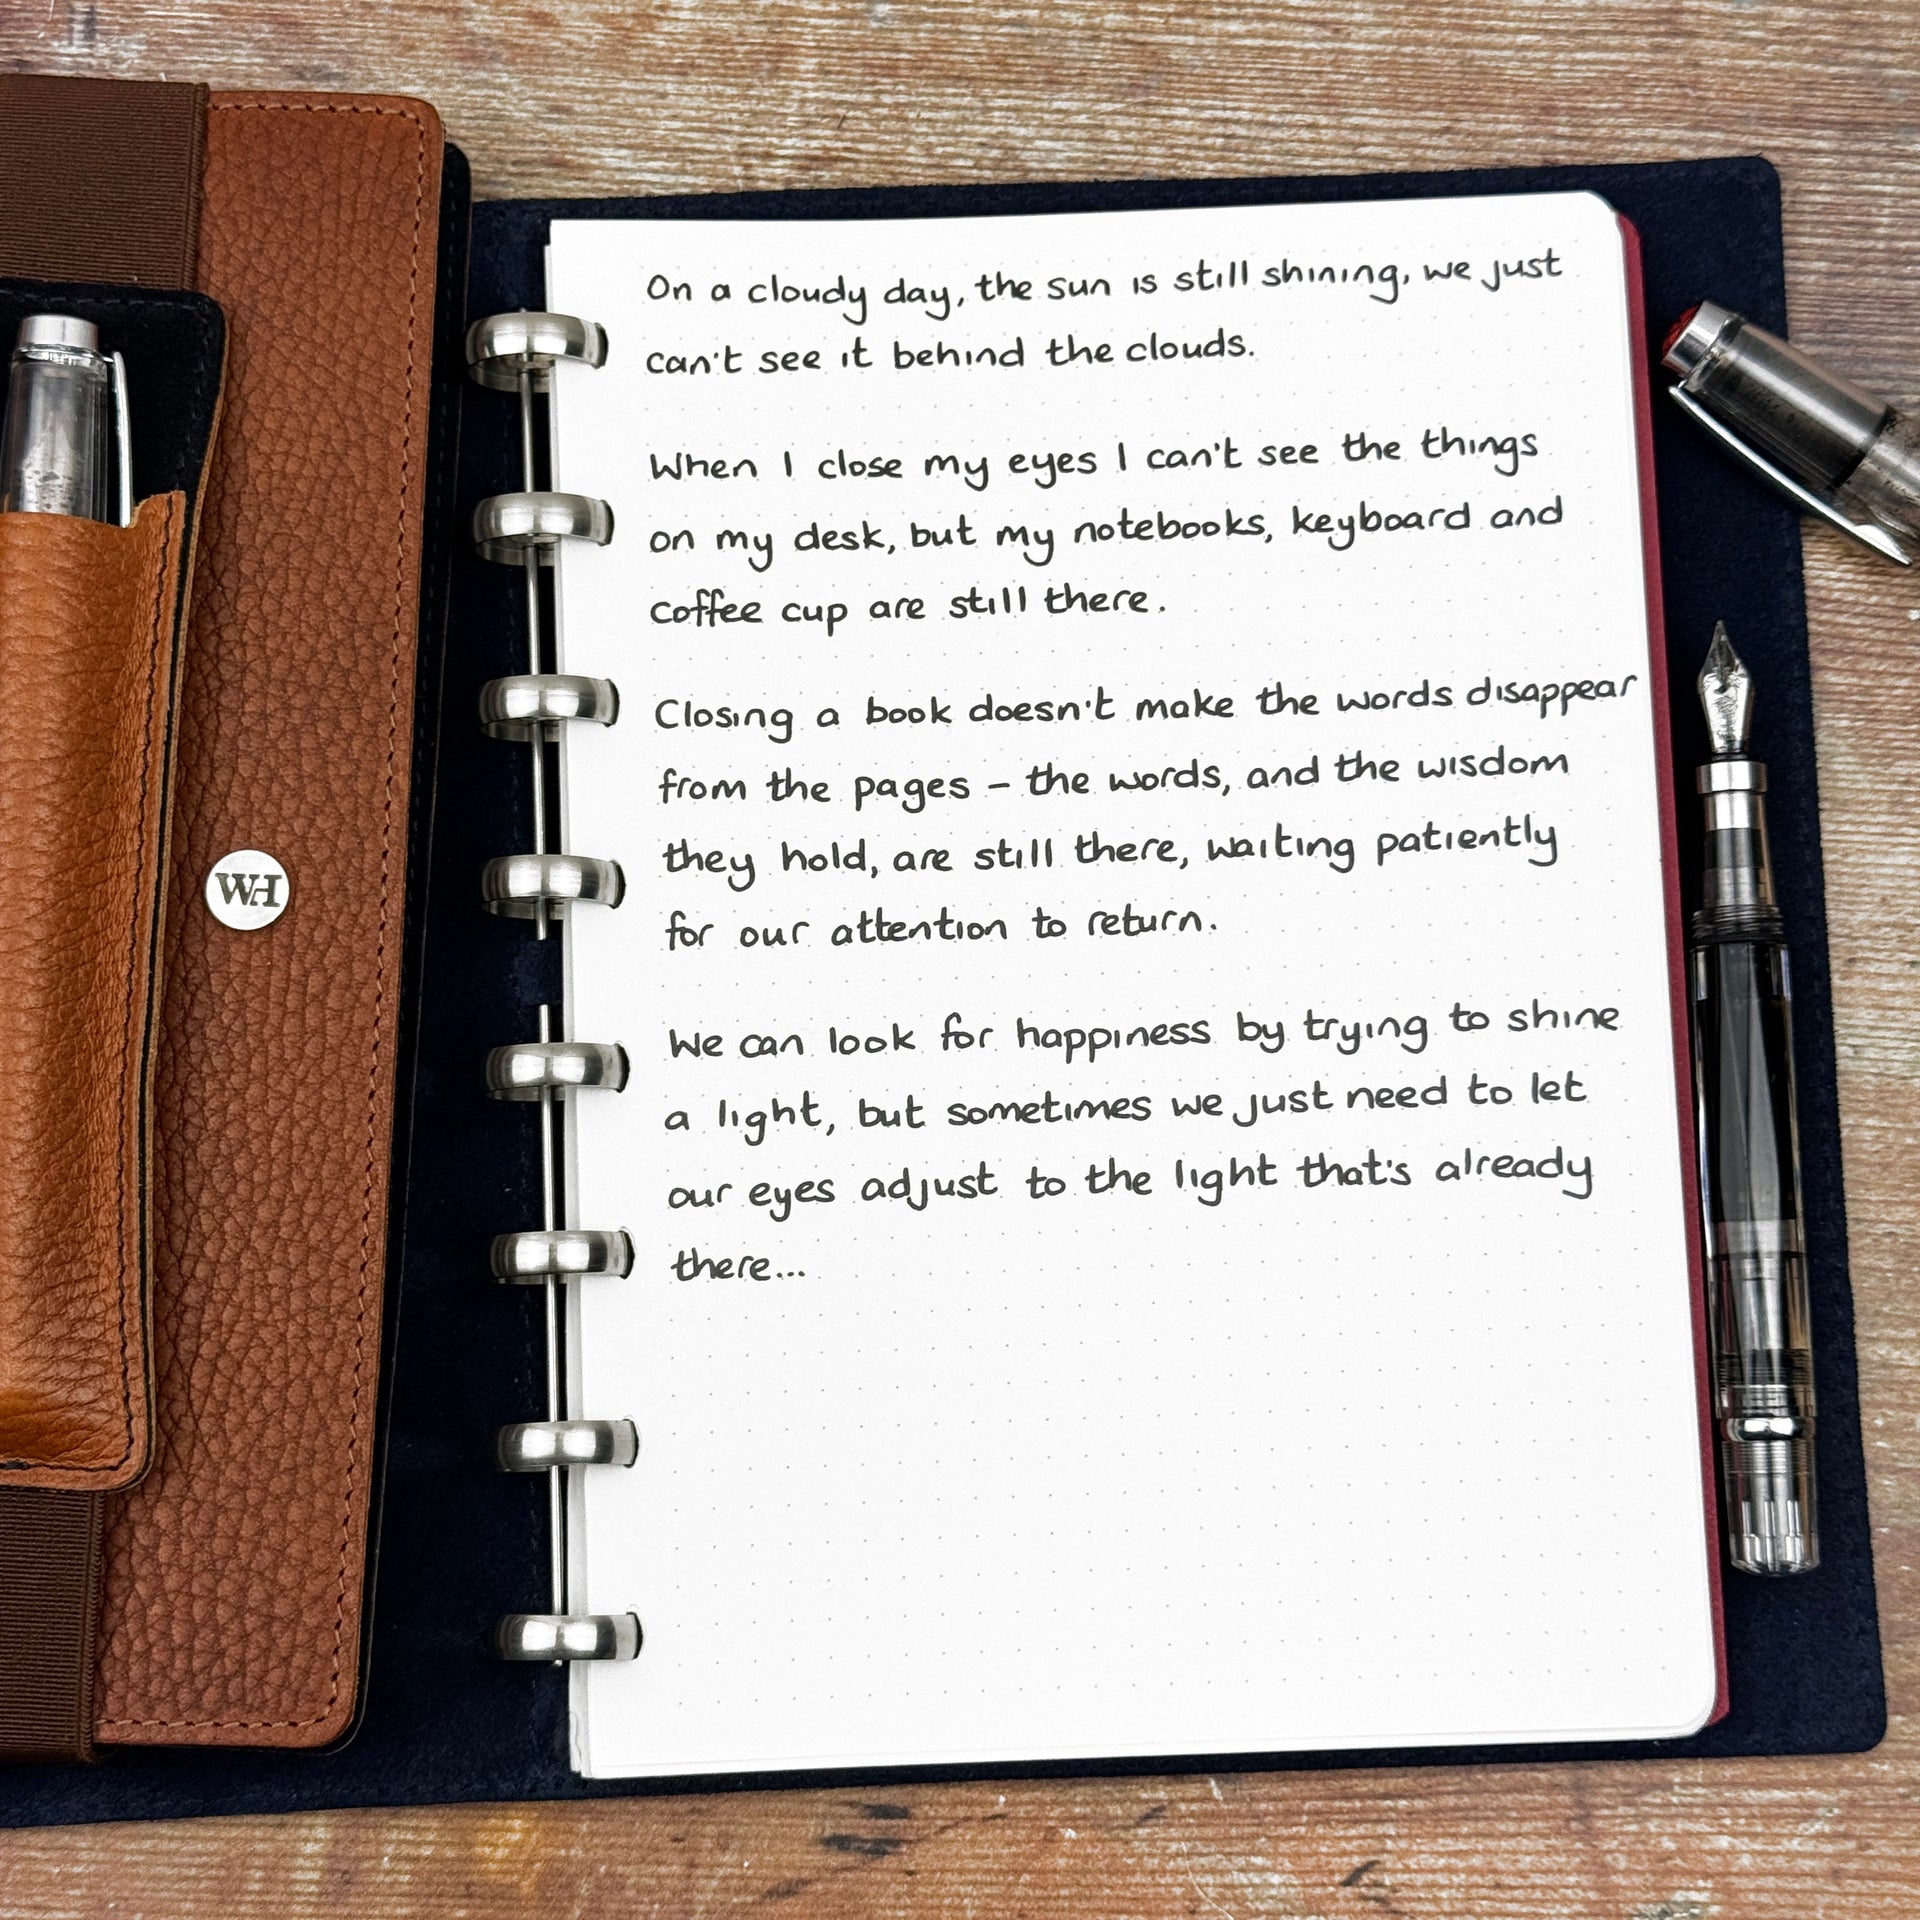 On a cloudy day, the sun is still shining, we just
can't see it behind the clouds.
When I close my eyes I can't see the things
on my desk, but my notebooks, keyboard and
coffee cup are still there.
Closing a book doesn't make the words disappear
from the pages – the words, and the wisdom
they hold, are still there, waiting patiently
for our attention to return.
We can look for happiness by trying to shine
a light, but sometimes we just need to let
our eyes adjust to the light that's already
there...
WH